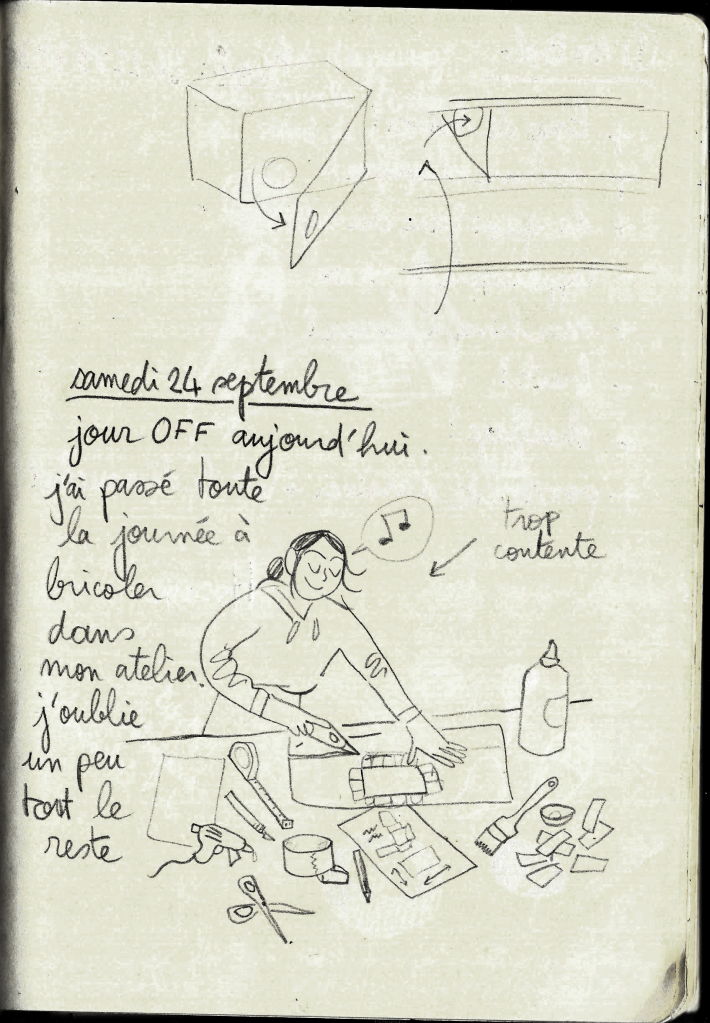 samedi 24 septembre
jour OFF aujourd'hui.
j'ai passé toute
la journée à
bricoler
dans
mon atelier.
j'oublie
un peu
tout le
reste
trop
contente